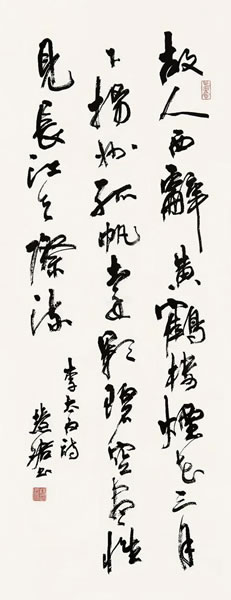 故人西辭黄鶴樓煙花三月
下揚州孤帆遠影碧空盡惟
見長江天際流
李太白詩
書